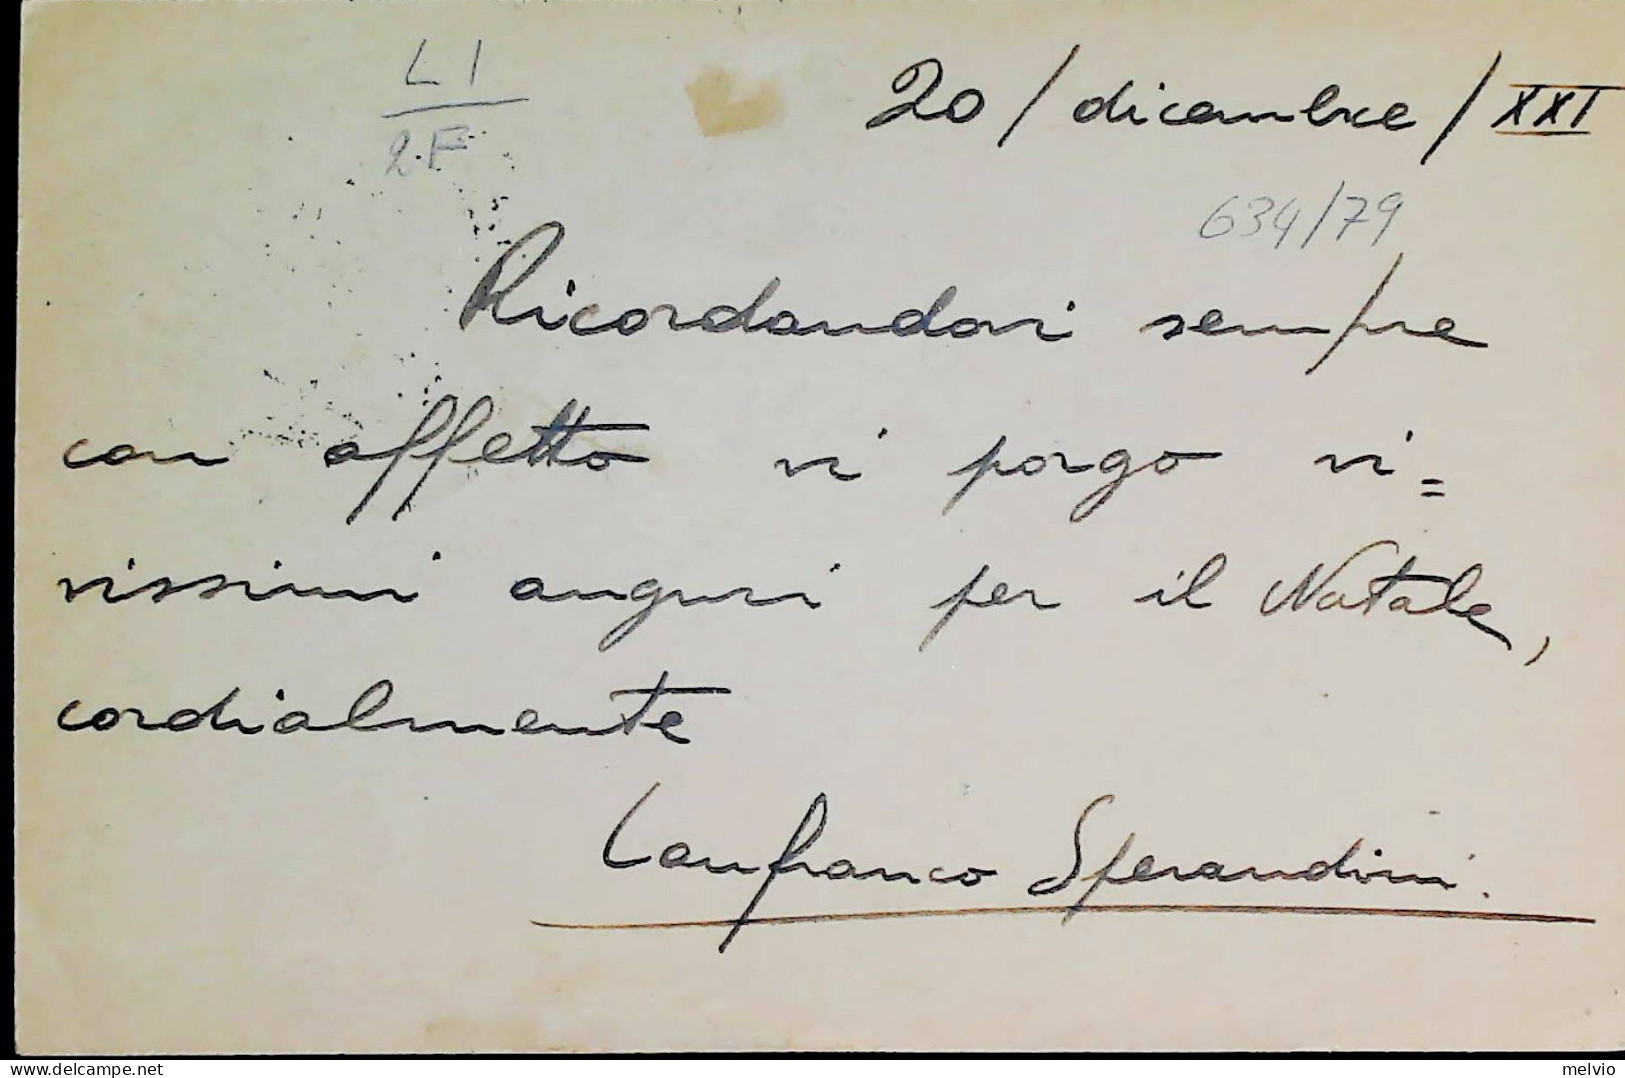 L I
2.F
20/dicembre/XXI
634/79
Ricordandovi sempre
con affetto vi porgo vi=
vissimi auguri per il Natale,
cordialmente
Lanfranco Sperandini.
delcampe.net
melvio